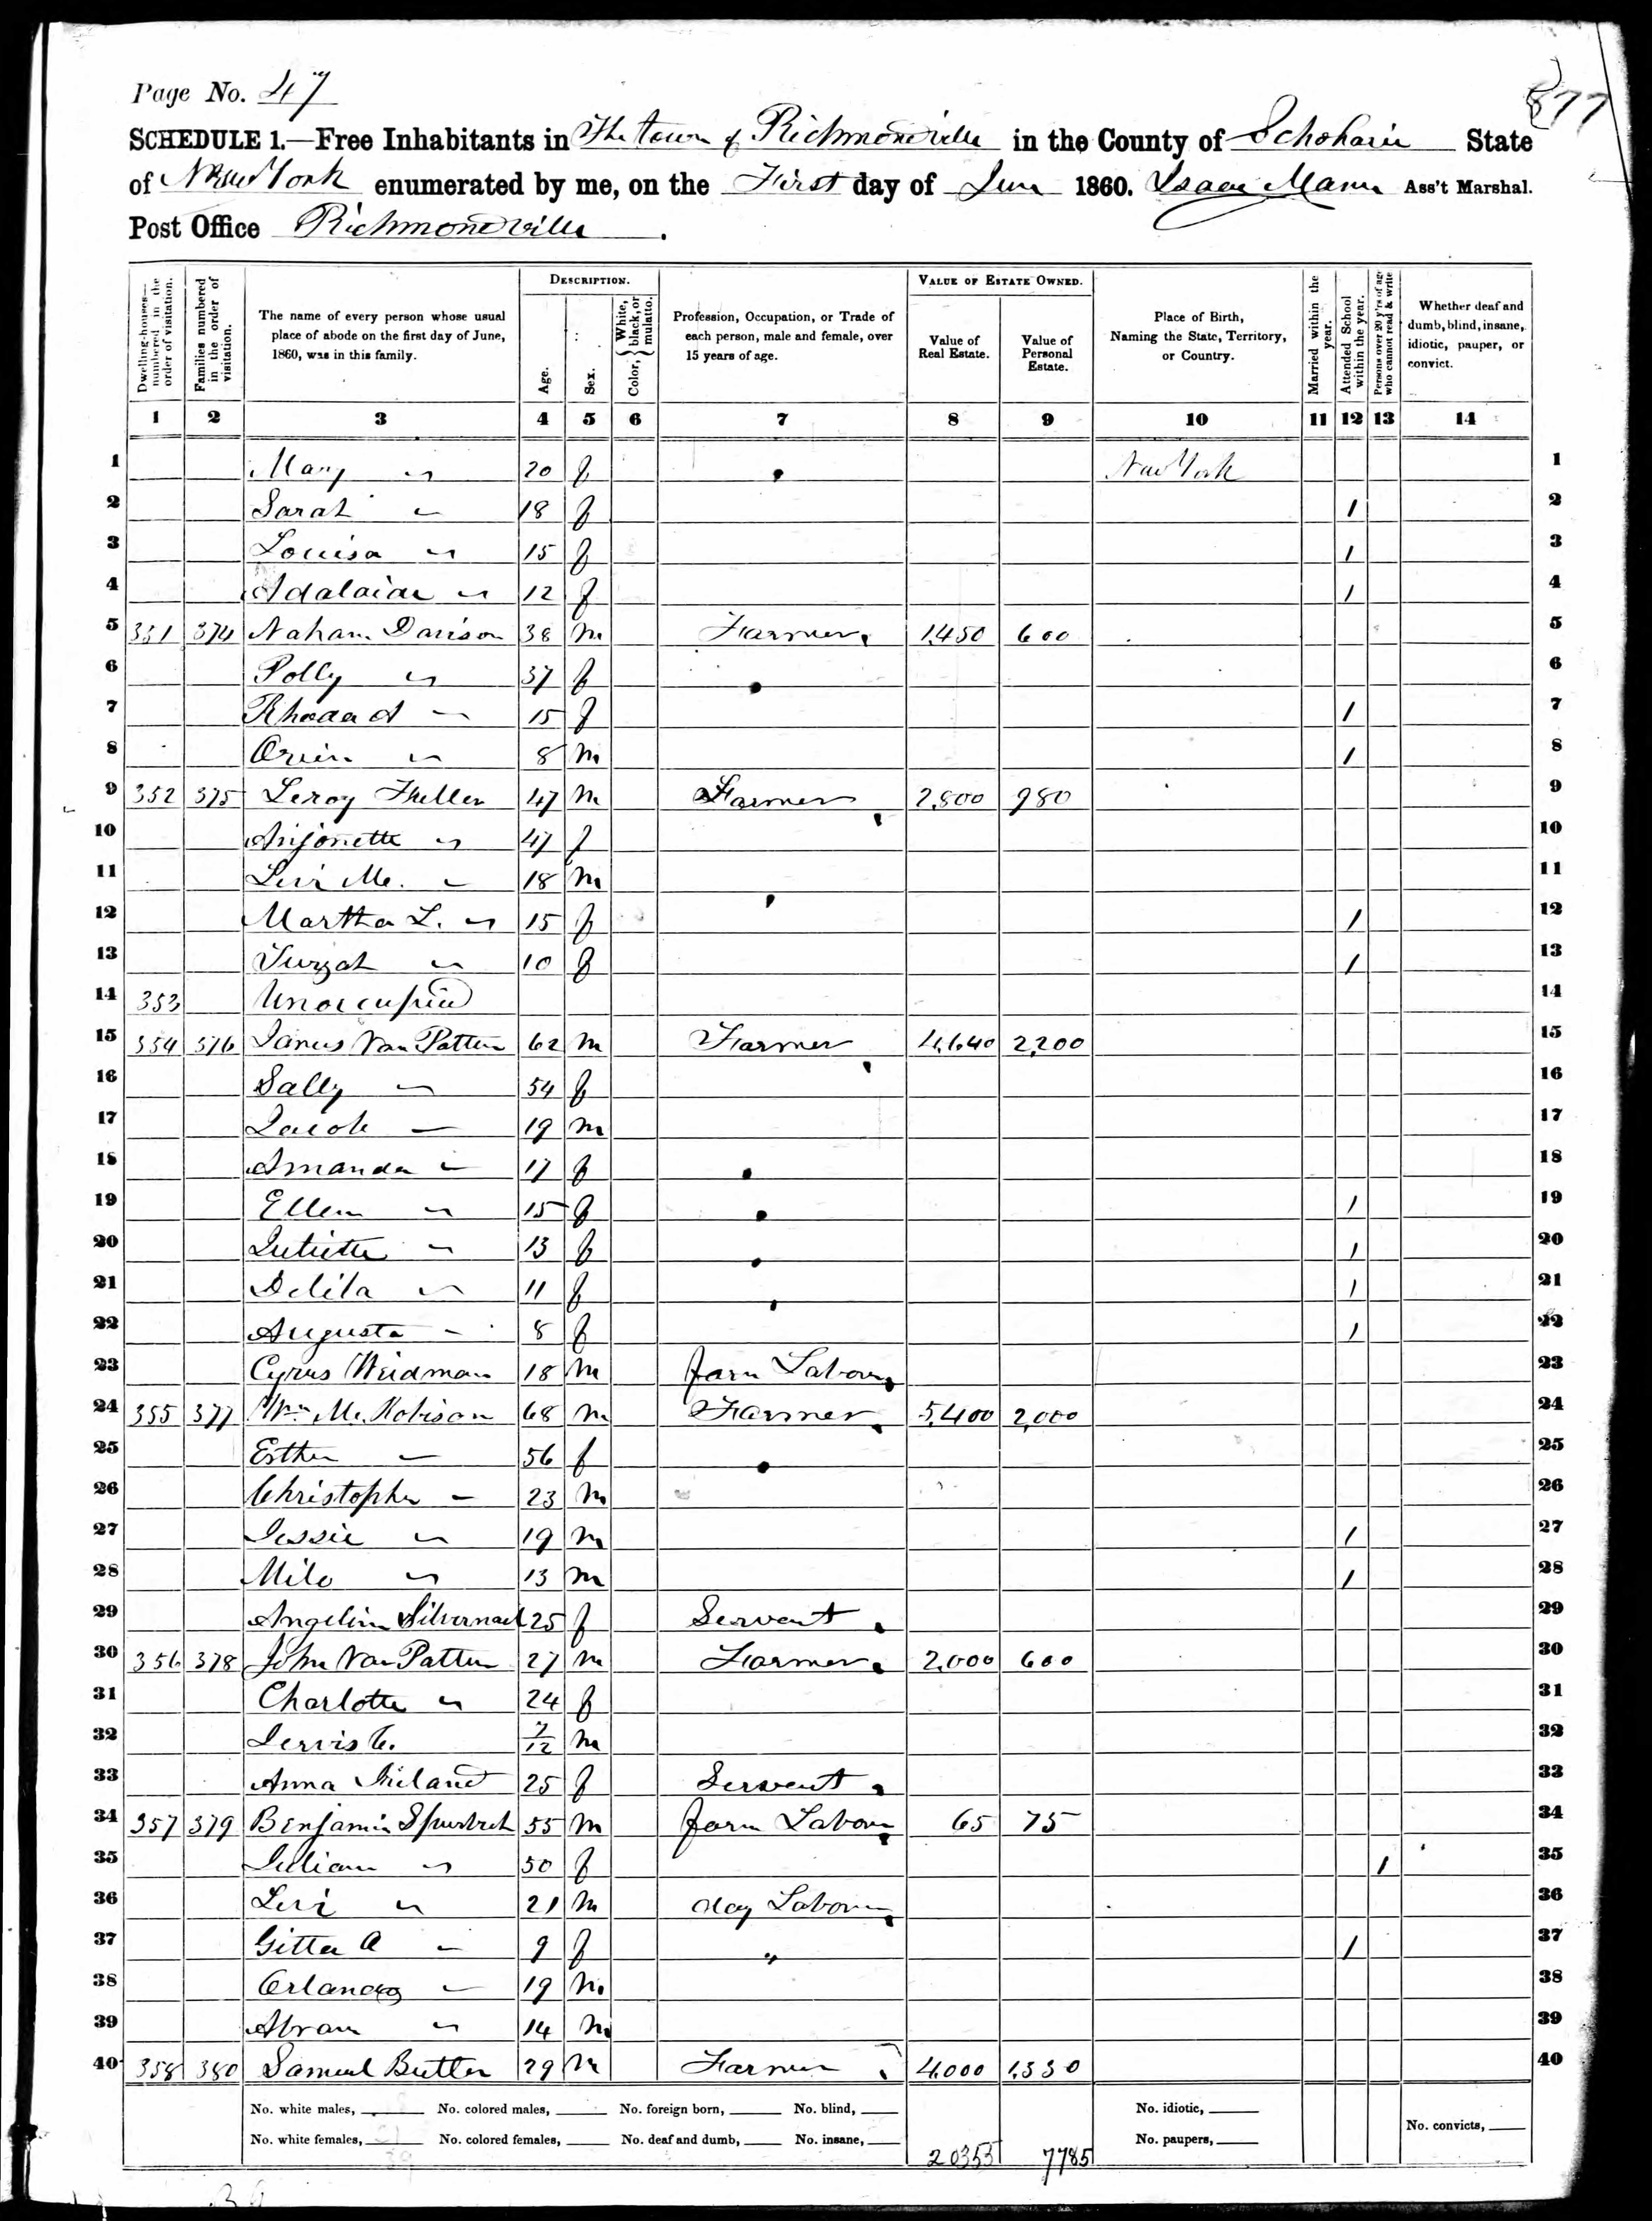 Page No. 47
877
SCHEDULE 1.—Free Inhabitants in The town of Richmondville in the County of Schoharie State
of New York enumerated by me, on the First day of June 1860. Isaac Mann Ass't Marshal.
Post Office Richmondville.
DESCRIPTION. VALUE OF ESTATE OWNED.
Dwelling-houses—numbered in the order of visitation. Families numbered in the order of visitation. The name of every person whose usual place of abode on the first day of June, 1860, was in this family. Age. Sex. Color, White, black, or mulatto. Profession, Occupation, or Trade of each person, male and female, over 15 years of age. Value of Real Estate. Value of Personal Estate. Place of Birth, Naming the State, Territory, or Country. Married within the year. Attended School within the year. Persons over 20 y'rs of age who cannot read & write Whether deaf and dumb, blind, insane, idiotic, pauper, or convict.
1 2 3 4 5 6 7 8 9 10 11 12 13 14
1 Mary " 20 f New York 1
2 Sarah " 18 f / 2
3 Louisa " 15 f / 3
4 Adalaide " 12 f / 4
5 351 374 Naham Davison 38 m Farmer 1,450 600 5
6 Polly " 37 f 6
7 Rhoda A " 15 f / 7
8 Orvin " 8 m / 8
9 352 375 Leroy Fuller 47 m Farmer 2,800 980 9
10 " 47 f 10
11 Levi M. " 18 m 11
12 Martha L. " 15 f / 12
13 Turzah " 10 f / 13
14 353 Unoccupied 14
15 354 376 Van Patten 62 m Farmer 4,640 2,200 15
16 Sally " 54 f 16
17 Jacob " 19 m 17
18 Amanda " 17 f 18
19 Ellen " 15 f / 19
20 Juliette " 13 f / 20
21 Delila " 11 f / 21
22 Augusta " 8 f / 22
23 Cyrus Weidman 18 m farm Labour 23
24 355 377 Wm. M. Robison 68 m Farmer 5,400 2,000 24
25 Esther " 56 f 25
26 Christopher " 23 m 26
27 Jessie " 19 m / 27
28 Milo " 13 m / 28
29 Angelina Silvernail 25 f Servent 29
30 356 378 John Van Patten 27 m Farmer 2,000 600 30
31 Charlotte " 24 f 31
32 Jervis C. /12 m 32
33 Anna Ireland 25 f Servent 33
34 357 379 Benjamin 55 m farm Labour 65 75 34
35 Julian " 50 f / 35
36 Levi " 21 m day Labour 36
37 Gitta A " 9 f " / 37
38 Orlando " 19 m 38
39 Abram " 14 m 39
40 358 380 Samuel Butler 29 m Farmer 4,000 1,330 40
No. white males, No. colored males, No. foreign born, No. blind, No. idiotic,
No. white females, No. colored females, No. deaf and dumb, No. insane, 20355 7785 No. paupers, No. convicts,
39